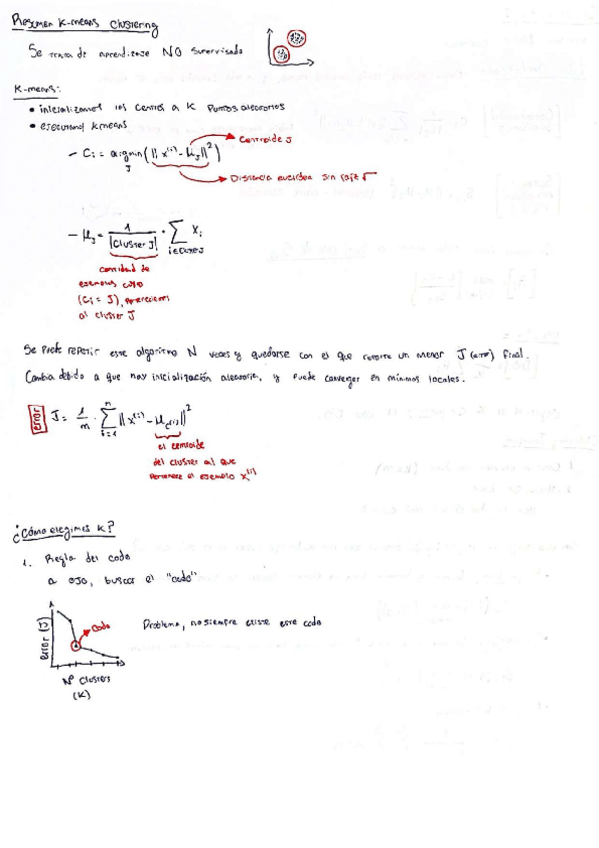 Resumen K-means Clustering
Se trata de aprendizaje NO supervisado
K-means:
• inicializamos los centros a K puntos aleatorios
• ejecutamos kmeans
- Ci = argmin(|| x^(i) - μ_J ||²)
J
Centroide J
Distancia euclídea sin raíz √
- μ_J = 1 / |Cluster J| · Σ Xi
i ∈ Cluster J
cantidad de
ejemplos cuyo
(Ci = J), pertenecientes
al cluster J
Se puede repetir este algoritmo N veces y quedarse con el que retorne un menor J (error) final.
Cambia debido a que hay inicialización aleatoria, y puede converger en mínimos locales.
error J = 1/m · Σ_{i=1}^{m} || x^(i) - μ_c(i) ||²
el centroide
del cluster al que
pertenece el ejemplo x^(i)
¿Cómo elegimos K?
1. Regla del codo
a ojo, buscar el "codo"
error (J)
Codo
Problema, no siempre existe este codo
Nº Clusters
(K)